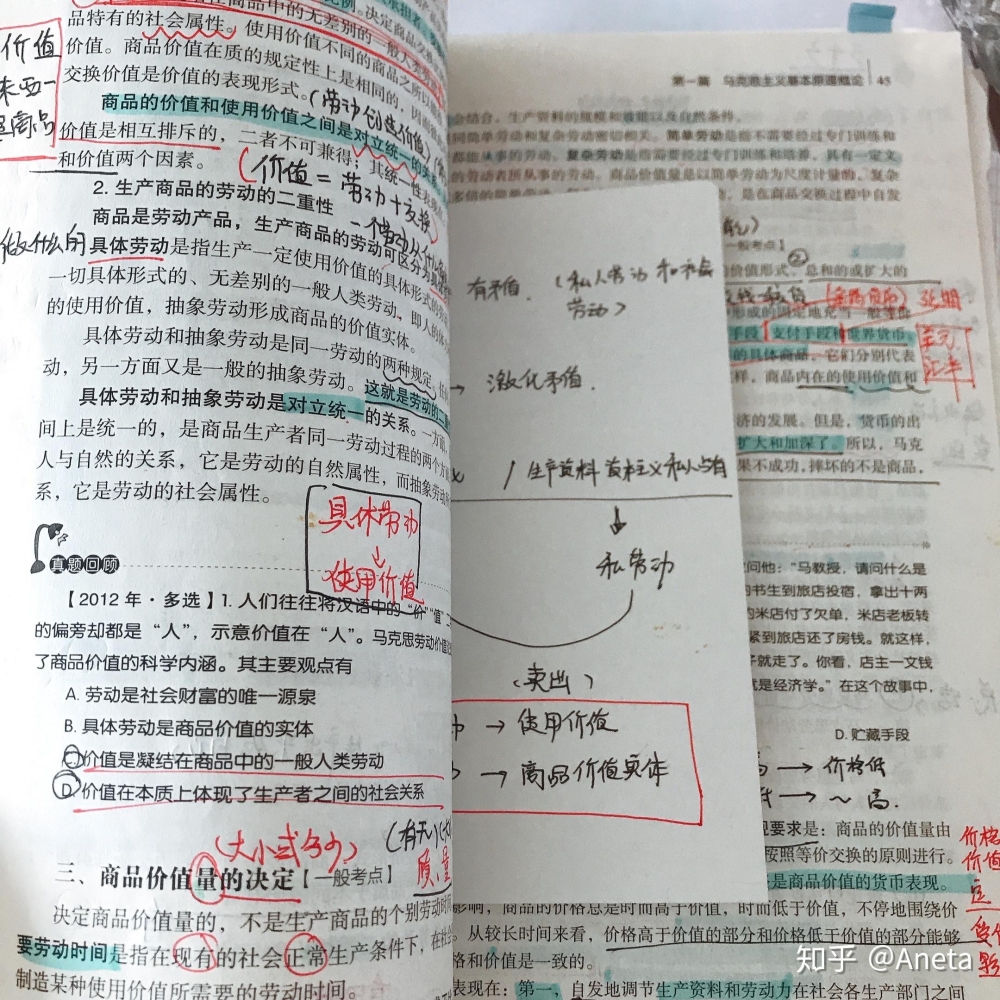 品中的无差别的一般人类
品特有的社会属性。使用价值不同的商品之所以能
价值。商品价值在质的规定性上是相同的，因而
交换价值是价值的表现形式。(劳动创造价值)
商品的价值和使用价值之间是对立统一的关
价值是相互排斥的，二者不可兼得；其统一性表
和价值两个因素。(价值＝劳动＋交换)
价值
2. 生产商品的劳动的二重性
商品是劳动产品，生产商品的劳动可区分为具体
做什么的
具体劳动是指生产一定使用价值的具体形式的劳
一切具体形式的、无差别的一般人类劳动，即人的体
的使用价值，抽象劳动形成商品的价值实体。
具体劳动和抽象劳动是同一劳动的两种规定。
动，另一方面又是一般的抽象劳动。这就是劳动的二重
具体劳动和抽象劳动是对立统一的关系。一方面
间上是统一的，是商品生产者同一劳动过程的两个方
人与自然的关系，它是劳动的自然属性，而抽象劳动
系，它是劳动的社会属性。
具体劳动
↓
使用价值
真题回顾
【2012 年·多选】1. 人们往往将汉语中的“价”“值”二
的偏旁却都是“人”，示意价值在“人”。马克思劳动价值
了商品价值的科学内涵。其主要观点有
A. 劳动是社会财富的唯一源泉
B. 具体劳动是商品价值的实体
C 价值是凝结在商品中的一般人类劳动
D 价值在本质上体现了生产者之间的社会关系
(大小或多少)
质、量
三、商品价值量的决定【一般考点】
决定商品价值量的，不是生产商品的个别劳动时
要劳动时间是指在现有的社会正常生产条件下，在社
制造某种使用价值所需要的劳动时间。
有矛盾. (私人劳动和社会
劳动)
→ 激化矛盾.
/ 生产资料资本主义私人占有
↓
私劳动
(卖出)
→ 使用价值
→ 商品价值实体
第一篇 马克思主义基本原理概论 45
会结合，生产资料的规模和效能以及自然条件。
同简单劳动和复杂劳动密切相关。简单劳动是指不需要经过专门训练和
都能从事的劳动。复杂劳动是指需要经过专门训练和培养，具有一定文
的劳动者所从事的劳动。商品价值量是以简单劳动为尺度计量的，复杂
是在商品交换过程中自发
一般考点】
价值形式、②总和的或扩大的
(金属货币)
形成的固定地充当一般等价
手段、支付手段和世界货币
的具体商品，它们分别代表
样，商品内在的使用价值和
济的发展，但是，货币的出
扩大和加深了。所以，马克
果不成功，摔坏的不是商品，
问他：“马教授，请问什么是
书生到旅店投宿，拿出十两
的米店付了欠单，米店老板转
紧到旅店还了房钱。就这样，
就走了。你看，店主一文钱
就是经济学。”在这个故事中，
D. 贮藏手段
→ 价格低
→ ～ 高.
现要求是：商品的价值量由
按照等价交换的原则进行。
是商品价值的货币表现。
影响，商品的价格总是时而高于价值，时而低于价值，不停地围绕价
从较长时间来看，价格高于价值的部分和价格低于价值的部分能够
格和价值是一致的。
表现在：第一，自发地调节生产资料和劳动力在社会各生产部门之间
价格
价值
定
知乎 @Aneta